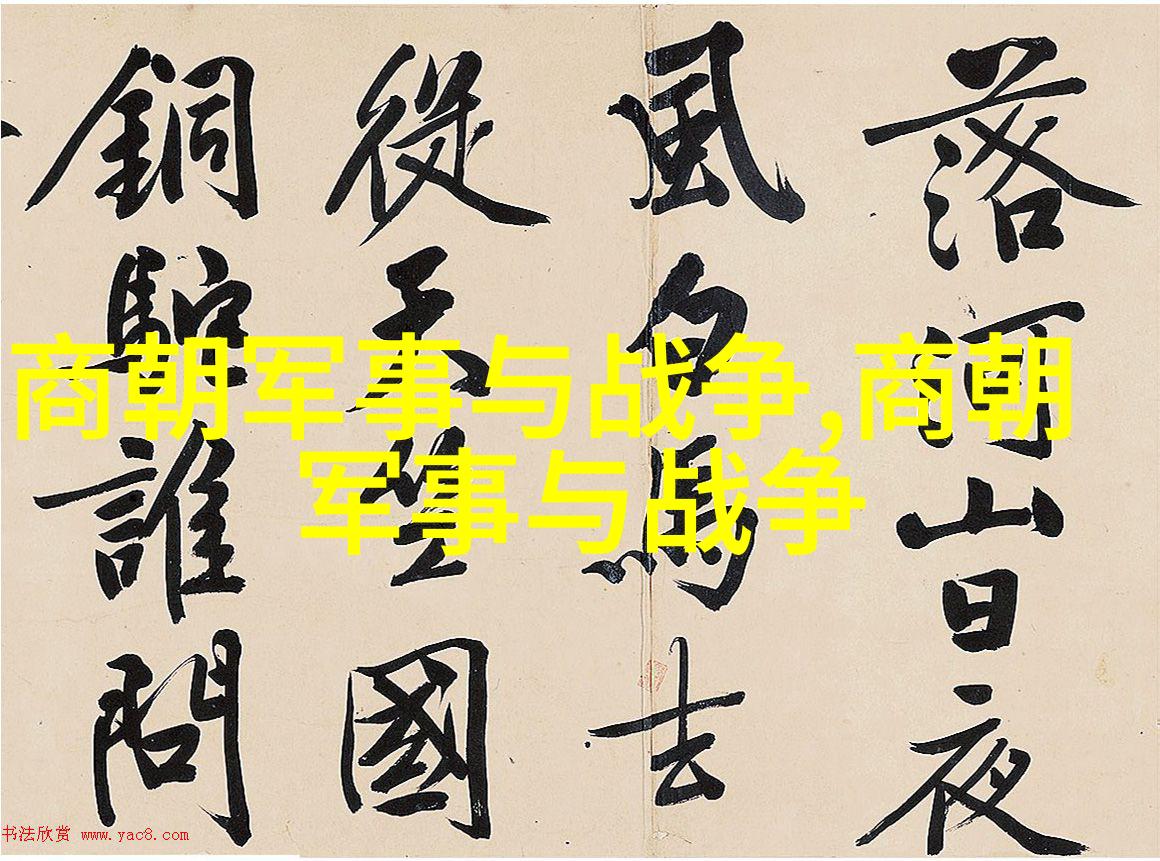 落河山日夜
風白馬去
從天竺國
銅駝誰問
商朝军事与战争,商朝
军事与战争
书法欣赏 www.yac8.com